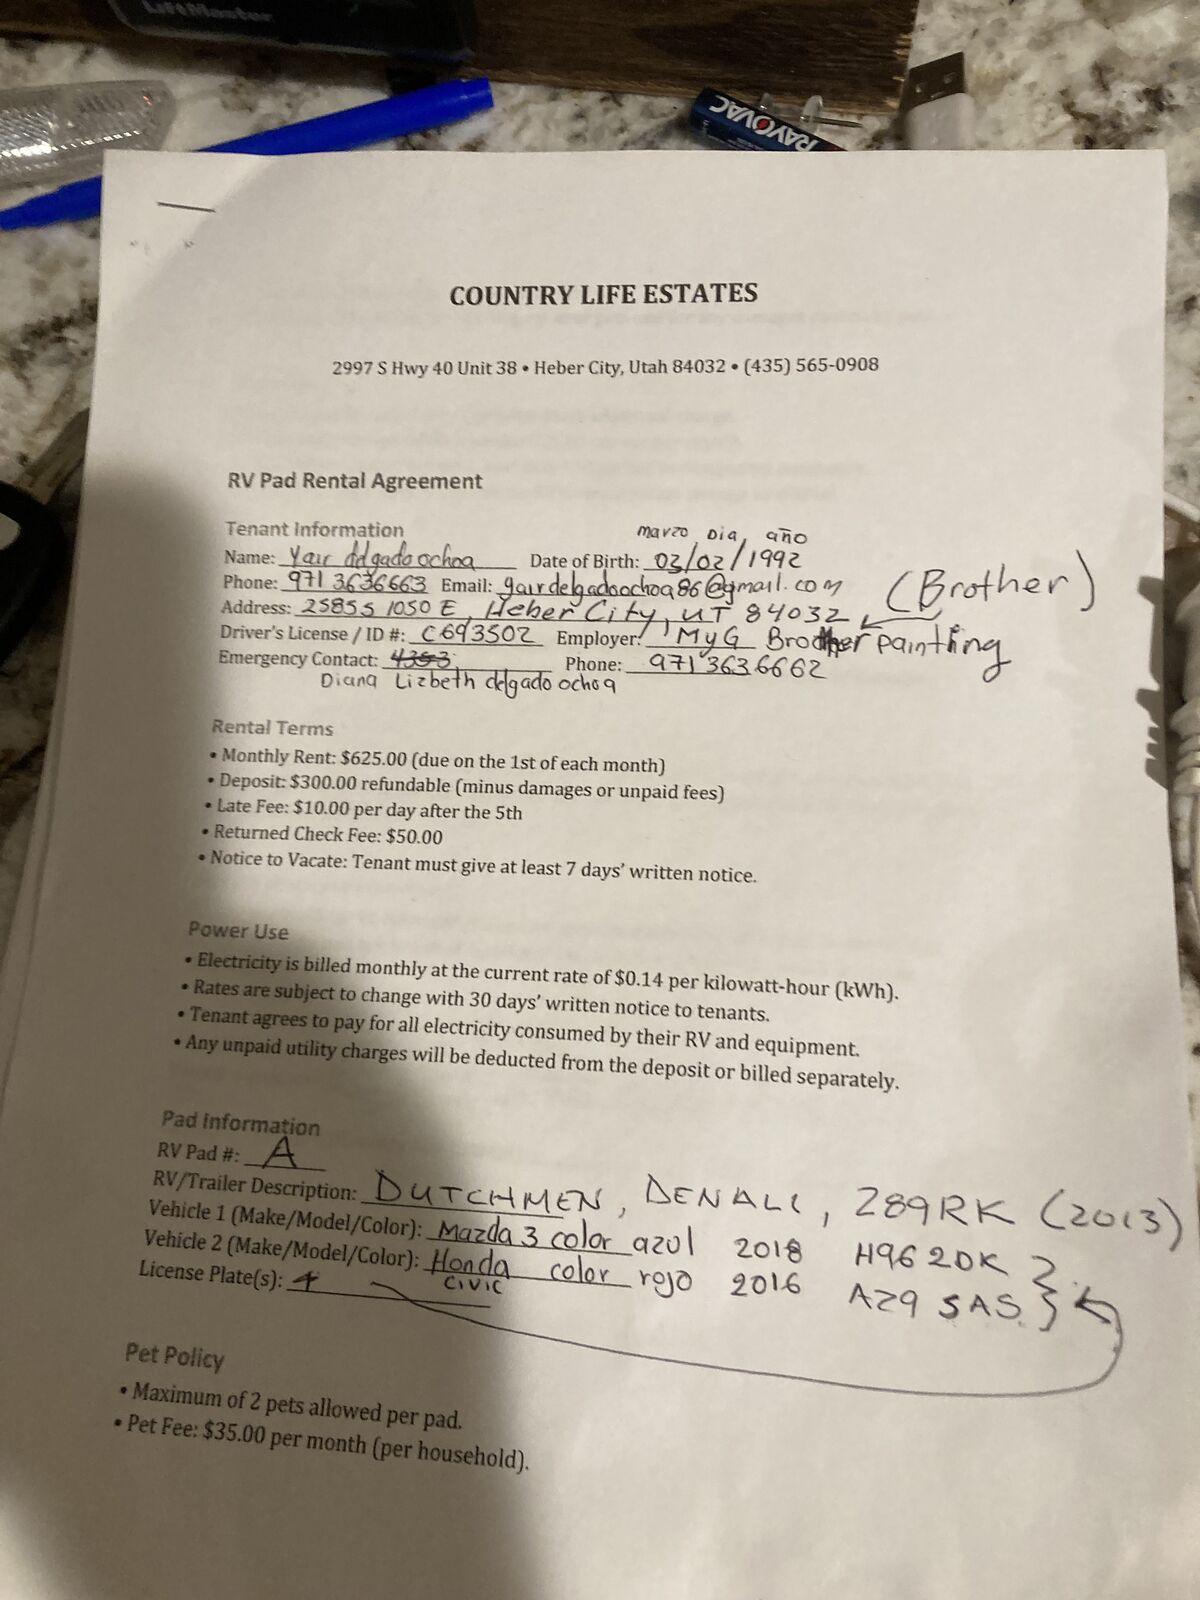 LiftMaster
RAYOVAC
COUNTRY LIFE ESTATES
2997 S Hwy 40 Unit 38 • Heber City, Utah 84032 • (435) 565-0908
RV Pad Rental Agreement
Tenant Information
marzo Dia, año
Name: Yair delgado ochoa Date of Birth: 03/02/1992
Phone: 971 3636663 Email: yairdelgadoochoa86@gmail.com
(Brother)
Address: 2585 S 1050 E, Heber City, UT 84032
Driver's License / ID #: C693502 Employer: MyG Brother painting
Emergency Contact: 4353 Phone: 971 363 6662
Diana Lizbeth delgado ochoa
Rental Terms
• Monthly Rent: $625.00 (due on the 1st of each month)
• Deposit: $300.00 refundable (minus damages or unpaid fees)
• Late Fee: $10.00 per day after the 5th
• Returned Check Fee: $50.00
• Notice to Vacate: Tenant must give at least 7 days' written notice.
Power Use
• Electricity is billed monthly at the current rate of $0.14 per kilowatt-hour (kWh).
• Rates are subject to change with 30 days' written notice to tenants.
• Tenant agrees to pay for all electricity consumed by their RV and equipment.
• Any unpaid utility charges will be deducted from the deposit or billed separately.
Pad Information
RV Pad #: A
RV/Trailer Description: DUTCHMEN, DENALI, 289RK (2013)
Vehicle 1 (Make/Model/Color): Mazda 3 color azul 2018 H962DK
Vehicle 2 (Make/Model/Color): Honda color rojo 2016 AZ9 5AS
civic
License Plate(s):
Pet Policy
• Maximum of 2 pets allowed per pad.
• Pet Fee: $35.00 per month (per household).